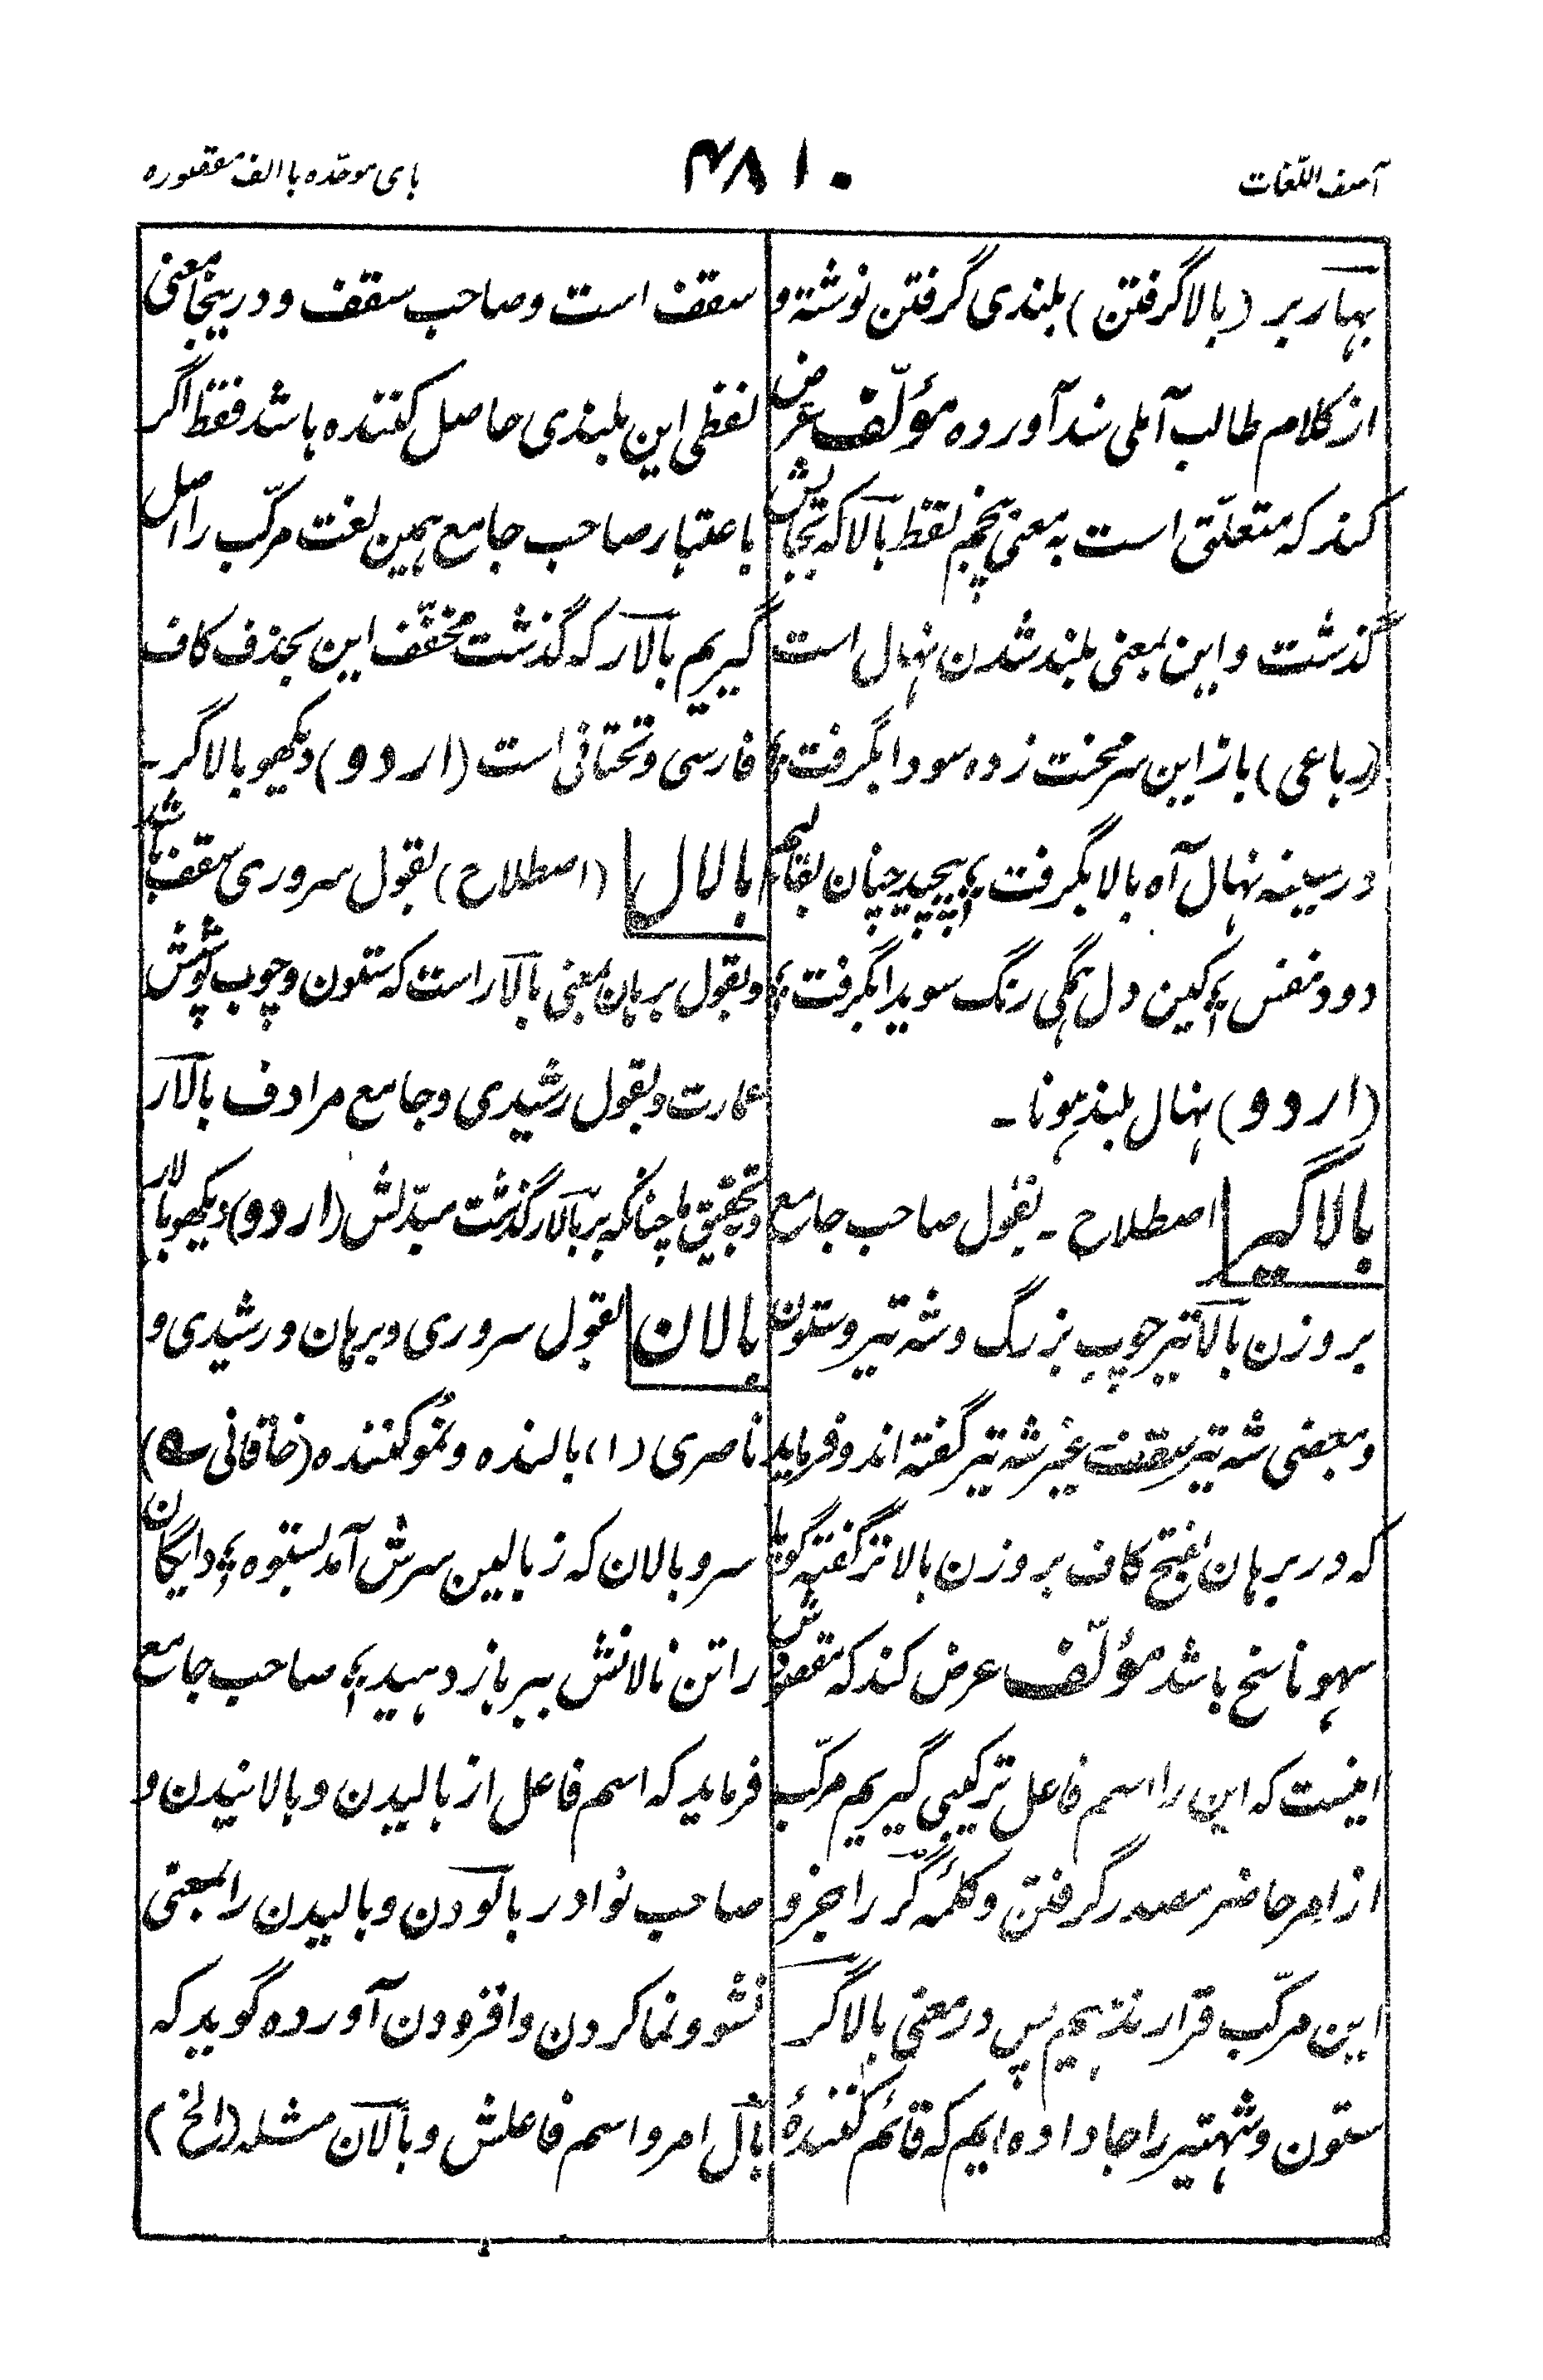 آصف اللّغات
۴۸۱۰
بای موحّده با الف مقصوره
بہار بر (بالا گرفتن) بلندی گرفتن نوشتہ و
از کلام طالب آملی سند آوردہ مؤلّف عرض
کند کہ متعلّق است بہ معنی پنجم لفظ بالا کہ بجایش
گذشت و این بمعنی بلند شدن نہال است
(رباعی) باز این سر محنت زدہ سودا بگرفت ؛
در سینہ نہال آہ بالا بگرفت ؛ پیچید چنان بقالبم
دود نفس ؛ کین دل ہمگی رنگ سویدا بگرفت ؛
(اردو) نہال بلند ہونا۔
بالاگیر اصطلاح۔ بقول صاحب جامع
بر وزن بالاتیر چوب بزرگ و شہ تیر و ستون
و بعضی شہ تیر سقف غیر شہ تیر گفتہ اند و فرماید
کہ در برہان بفتح کاف بر وزن بالاتر گفتہ گویا
سہو ناسخ باشد مؤلّف عرض کند کہ مقصودش
اینست کہ این را اسم فاعل ترکیبی گیریم مرکّب
از امر حاضر مصدر گرفتن و کلمۂ گر را جزو
این مرکّب قرار ندہیم پس در معنی بالاگر
ستون و شہتیر را جا دادہ ایم کہ قائم کنندۂ
سقف است و صاحب سقف و در ینجا معنی
لفظی این بلندی حاصل کنندہ باشد فقط اگر
باعتبار صاحب جامع ہمین لغت مرکّب را اصل
گیریم بالار کہ گذشت مخفّف این بحذف کاف
فارسی و تحتانی است (اردو) دیکھو بالاگر۔
بالال (اصطلاح) بقول سروری سقف باشد
و بقول برہان بمعنی بالار است کہ ستون و چوب پوشش
عمارت و بقول رشیدی و جامع مرادف بالار
و بتحقیق ما چنانکہ بر بالار گذشت مبدّلش (اردو) دیکھو بالار
بالان بقول سروری و برہان و رشیدی و
ناصری (۱) بالندہ و نموکنندہ (خاقانی ؎)
سرو بالان کہ ز بالین سرش آمد بستوہ ؛ دایگان
را تن نالانش ببر باز دہید ؛ صاحب جامع
فرماید کہ اسم فاعل از بالیدن و بالانیدن و
صاحب نوادر بالودن و بالیدن را بمعنی
نشو و نما کردن و افزودن آوردہ گوید کہ
بال امر و اسم فاعلش و بالان مثلہ (الخ)